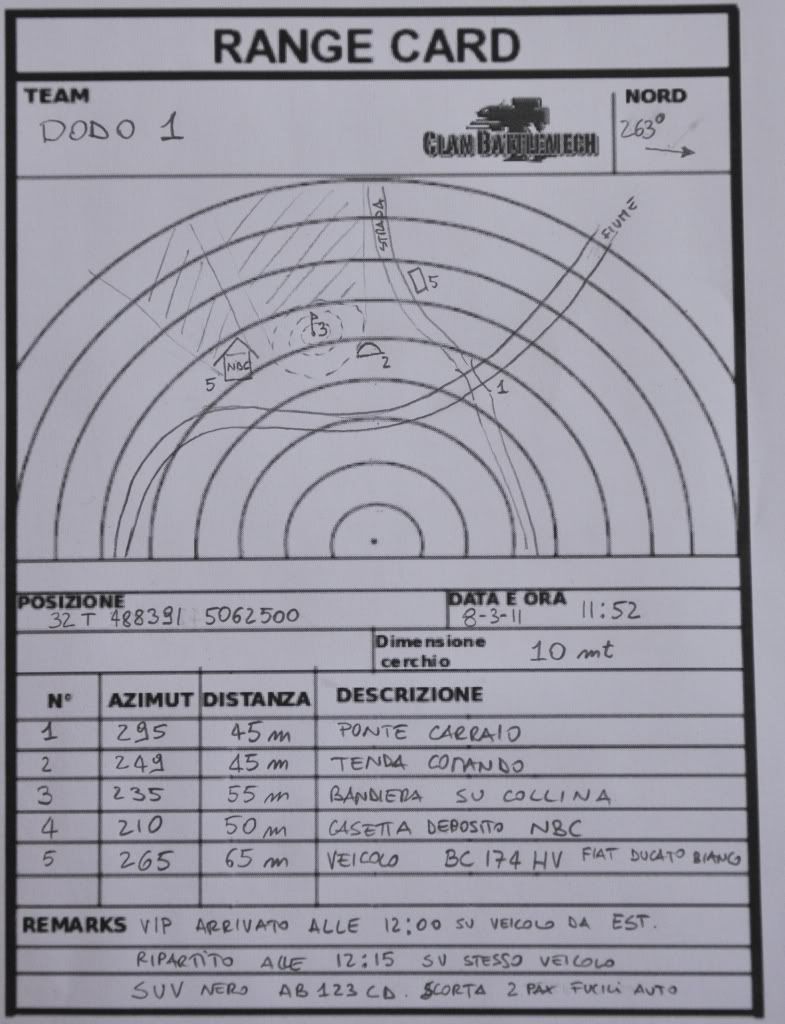 RANGE CARD
TEAM
DODO 1
CLAN BATTLEMECH
NORD
263°
STRADA
FIUME
5
3
2
NBC
5
1
POSIZIONE
32 T 488391 5062500
DATA E ORA
8-3-11 11:52
Dimensione cerchio
10 mt
N° AZIMUT DISTANZA DESCRIZIONE
1 295 45 m PONTE CARRAIO
2 249 45 m TENDA COMANDO
3 235 55 m BANDIERA SU COLLINA
4 210 50 m CASETTA DEPOSITO NBC
5 265 65 m VEICOLO BC 174 HV FIAT DUCATO BIANCO
REMARKS VIP ARRIVATO ALLE 12:00 SU VEICOLO DA EST.
RIPARTITO ALLE 12:15 SU STESSO VEICOLO
SUV NERO AB 123 CD. SCORTA 2 PAX FUCILI AUTO